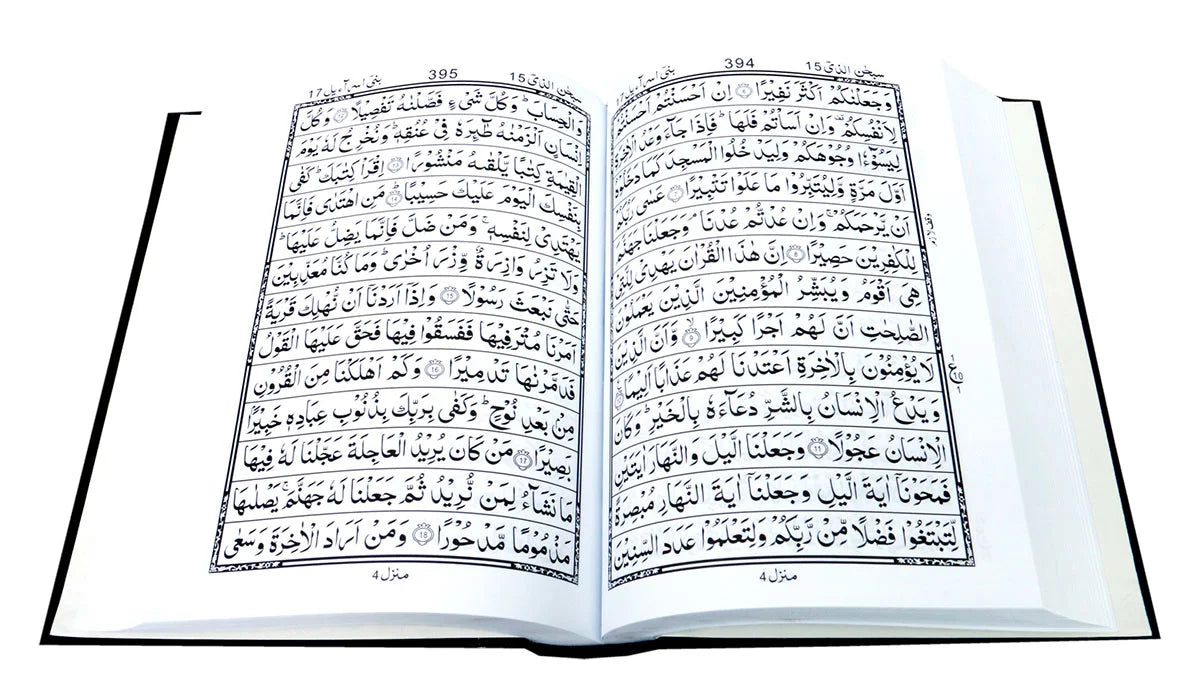 سبحن الذی 15
394
بنی اسرآءیل 17
وَجَعَلْنٰكُمْ اَكْثَرَ نَفِیْرًا ﴿6﴾ اِنْ اَحْسَنْتُمْ اَحْسَنْتُمْ
لِاَنْفُسِكُمْ ۫ وَاِنْ اَسَاْتُمْ فَلَهَا ؕ فَاِذَا جَآءَ وَعْدُ الْاٰخِرَةِ
لِیَسُوْٓءٗا وُجُوْهَكُمْ وَلِیَدْخُلُوا الْمَسْجِدَ كَمَا دَخَلُوْهُ
اَوَّلَ مَرَّةٍ وَّلِیُتَبِّرُوْا مَا عَلَوْا تَتْبِیْرًا ﴿7﴾ عَسٰی رَبُّكُمْ
اَنْ یَّرْحَمَكُمْ ۚ وَاِنْ عُدْتُّمْ عُدْنَا ۘ وَجَعَلْنَا جَهَنَّمَ
لِلْكٰفِرِیْنَ حَصِیْرًا ﴿8﴾ اِنَّ هٰذَا الْقُرْاٰنَ یَهْدِیْ لِلَّتِیْ
هِیَ اَقْوَمُ وَیُبَشِّرُ الْمُؤْمِنِیْنَ الَّذِیْنَ یَعْمَلُوْنَ
الصّٰلِحٰتِ اَنَّ لَهُمْ اَجْرًا كَبِیْرًا ﴿9﴾ وَّاَنَّ الَّذِیْنَ
لَا یُؤْمِنُوْنَ بِالْاٰخِرَةِ اَعْتَدْنَا لَهُمْ عَذَابًا اَلِیْمًا ﴿10﴾
وَیَدْعُ الْاِنْسَانُ بِالشَّرِّ دُعَآءَهٗ بِالْخَیْرِ ؕ وَكَانَ
الْاِنْسَانُ عَجُوْلًا ﴿11﴾ وَجَعَلْنَا الَّیْلَ وَالنَّهَارَ اٰیَتَیْنِ
فَمَحَوْنَاۤ اٰیَةَ الَّیْلِ وَجَعَلْنَاۤ اٰیَةَ النَّهَارِ مُبْصِرَةً
لِّتَبْتَغُوْا فَضْلًا مِّنْ رَّبِّكُمْ وَلِتَعْلَمُوْا عَدَدَ السِّنِیْنَ
منزل 4
وقف لازم
ع
10
سبحن الذی 15
395
بنی اسرآءیل 17
وَالْحِسَابَ ؕ وَكُلَّ شَیْءٍ فَصَّلْنٰهُ تَفْصِیْلًا ﴿12﴾ وَكُلَّ
اِنْسَانٍ اَلْزَمْنٰهُ طٰٓئِرَهٗ فِیْ عُنُقِهٖ ؕ وَنُخْرِجُ لَهٗ یَوْمَ
الْقِیٰمَةِ كِتٰبًا یَّلْقٰىهُ مَنْشُوْرًا ﴿13﴾ اِقْرَاْ كِتٰبَكَ ؕ كَفٰی
بِنَفْسِكَ الْیَوْمَ عَلَیْكَ حَسِیْبًا ﴿14﴾ؕ مَنِ اهْتَدٰی فَاِنَّمَا
یَهْتَدِیْ لِنَفْسِهٖ ۚ وَمَنْ ضَلَّ فَاِنَّمَا یَضِلُّ عَلَیْهَا ؕ
وَلَا تَزِرُ وَازِرَةٌ وِّزْرَ اُخْرٰی ؕ وَمَا كُنَّا مُعَذِّبِیْنَ
حَتّٰی نَبْعَثَ رَسُوْلًا ﴿15﴾ وَاِذَاۤ اَرَدْنَاۤ اَنْ نُّهْلِكَ قَرْیَةً
اَمَرْنَا مُتْرَفِیْهَا فَفَسَقُوْا فِیْهَا فَحَقَّ عَلَیْهَا الْقَوْلُ
فَدَمَّرْنٰهَا تَدْمِیْرًا ﴿16﴾ وَكَمْ اَهْلَكْنَا مِنَ الْقُرُوْنِ
مِنْۢ بَعْدِ نُوْحٍ ؕ وَكَفٰی بِرَبِّكَ بِذُنُوْبِ عِبَادِهٖ خَبِیْرًۢا
بَصِیْرًا ﴿17﴾ مَنْ كَانَ یُرِیْدُ الْعَاجِلَةَ عَجَّلْنَا لَهٗ فِیْهَا
مَا نَشَآءُ لِمَنْ نُّرِیْدُ ثُمَّ جَعَلْنَا لَهٗ جَهَنَّمَ ۚ یَصْلٰىهَا
مَذْمُوْمًا مَّدْحُوْرًا ﴿18﴾ وَمَنْ اَرَادَ الْاٰخِرَةَ وَسَعٰی
منزل 4